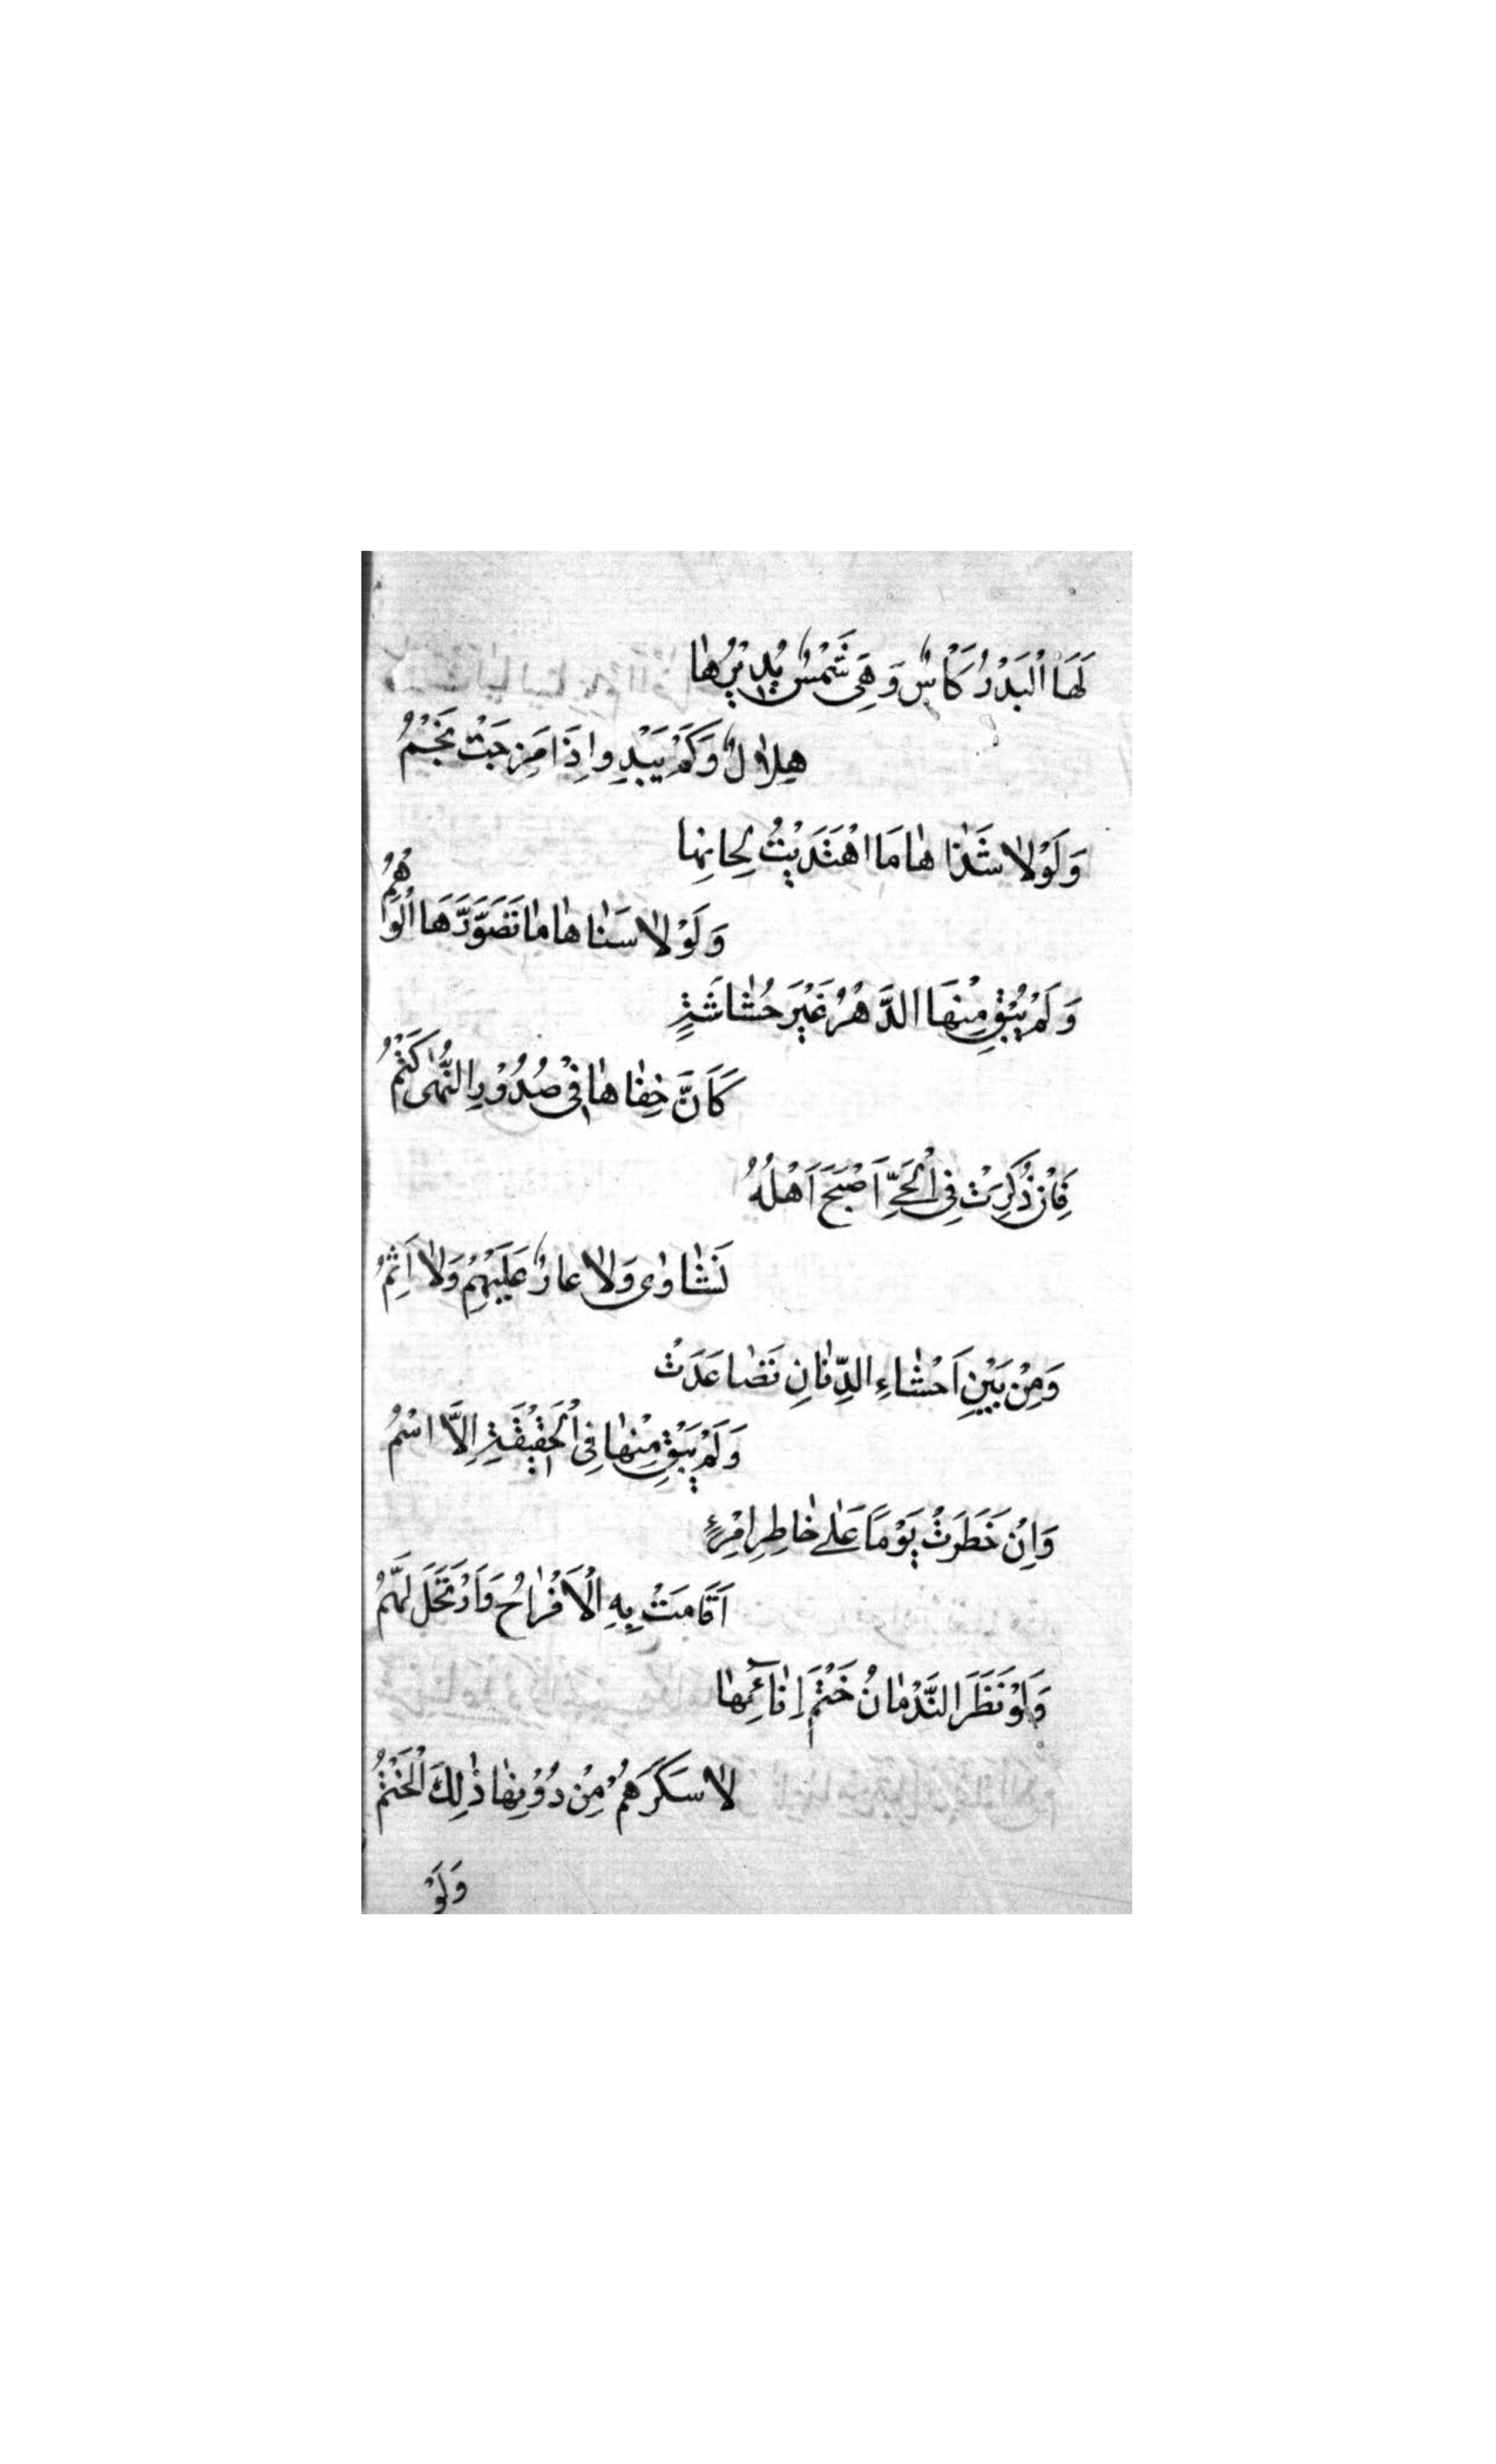 لَهَا الْبَدْرُ كَاْسٌ وَهِىَ شَمْسٌ يُدِيْرُهٰا
هِلٰالٌ وَكَمْ يَبْدِوا اِذَا مَزِجَتْ نَجْمُ
وَلَوْلٰا شَذٰاهٰا مَا اهْتَدَيْتُ لِحٰانِهٰا
وَلَوْلٰا سَنٰاهٰا مٰا تَصَوَّرَهَا الْوَهْمُ
وَلَمْ يُبْقِ مِنْهَا الدَّهْرُ غَيْرَ حُشٰاشَةٍ
كَاَنَّ خِفٰاهٰا فِىْ صُدُوْرِ النُّهٰى كَتْمُ
فَاِنْ ذُكِرَتْ فِى الْحَىِّ اَصْبَحَ اَهْلُهُ
نَشٰاوٰى وَلٰا عارٌ عَلَيْهِمْ وَلٰا اَثِمُ
وَمِنْ بَيْنِ اَحْشٰاءِ الدِّنٰانِ تَصٰاعَدَتْ
وَلَمْ يَبْقِ مِنْهٰا فِى الْحَقِيْقَةِ اِلَّا اسْمُ
وَاِنْ خَطَرَتْ يَوْمًا عَلٰى خٰاطِرِ امْرِءٍ
اَقٰامَتْ بِهِ الْاَفْرٰاحُ وَاَرْتَحَلَ لَهَّمُ
وَلَوْ نَظَرَ النَّدْمٰانُ خَتْمَ اِنٰآئِمهٰا
لٰاسَكَرَهُمْ مِنْ دُوْنِهٰا ذٰلِكَ الْخَتْمُ
وَلَوْ